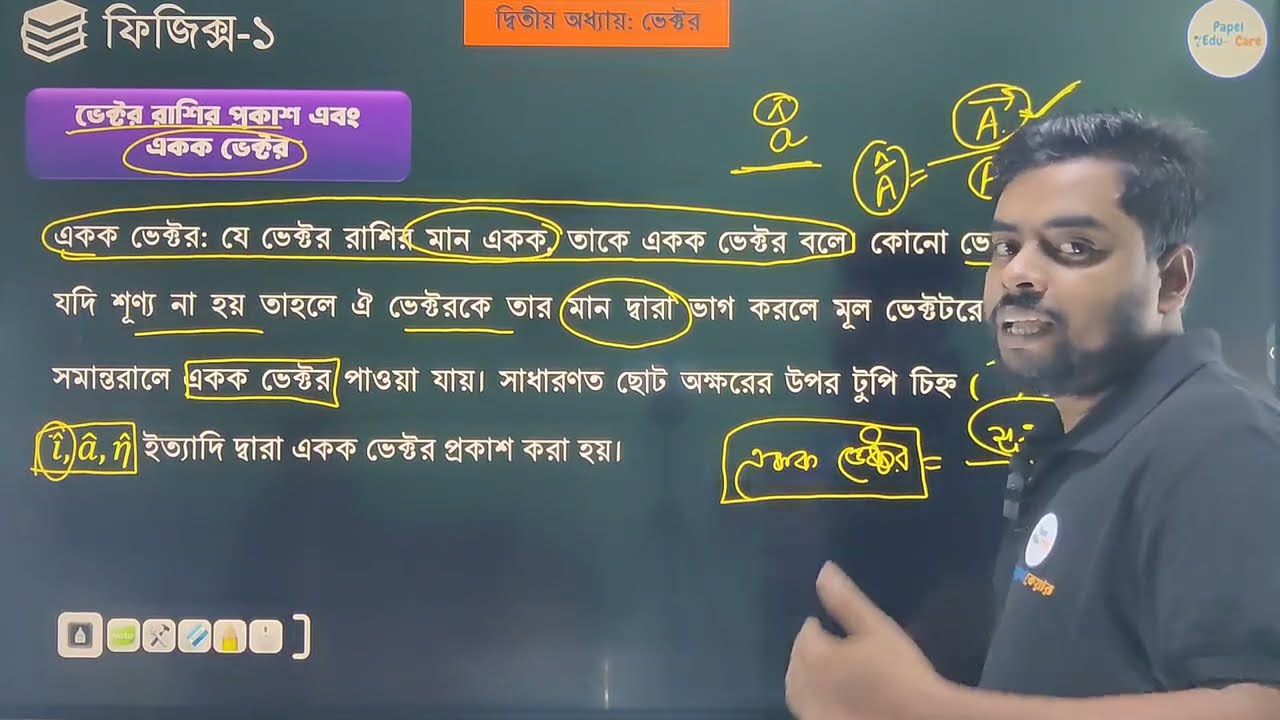 ফিজিক্স-১
দ্বিতীয় অধ্যায়: ভেক্টর
Papel
Edu- Care
ভেক্টর রাশির প্রকাশ এবং
একক ভেক্টর
â
Â =
A⃗
একক ভেক্টর: যে ভেক্টর রাশির মান একক, তাকে একক ভেক্টর বলে। কোনো
যদি শূণ্য না হয় তাহলে ঐ ভেক্টরকে তার মান দ্বারা ভাগ করলে মূল ভেক্টটরে
সমান্তরালে একক ভেক্টর পাওয়া যায়। সাধারণত ছোট অক্ষরের উপর টুপি চিহ্ন (
î, â, η̂ ইত্যাদি দ্বারা একক ভেক্টর প্রকাশ করা হয়।
একক ভেক্টর =
note